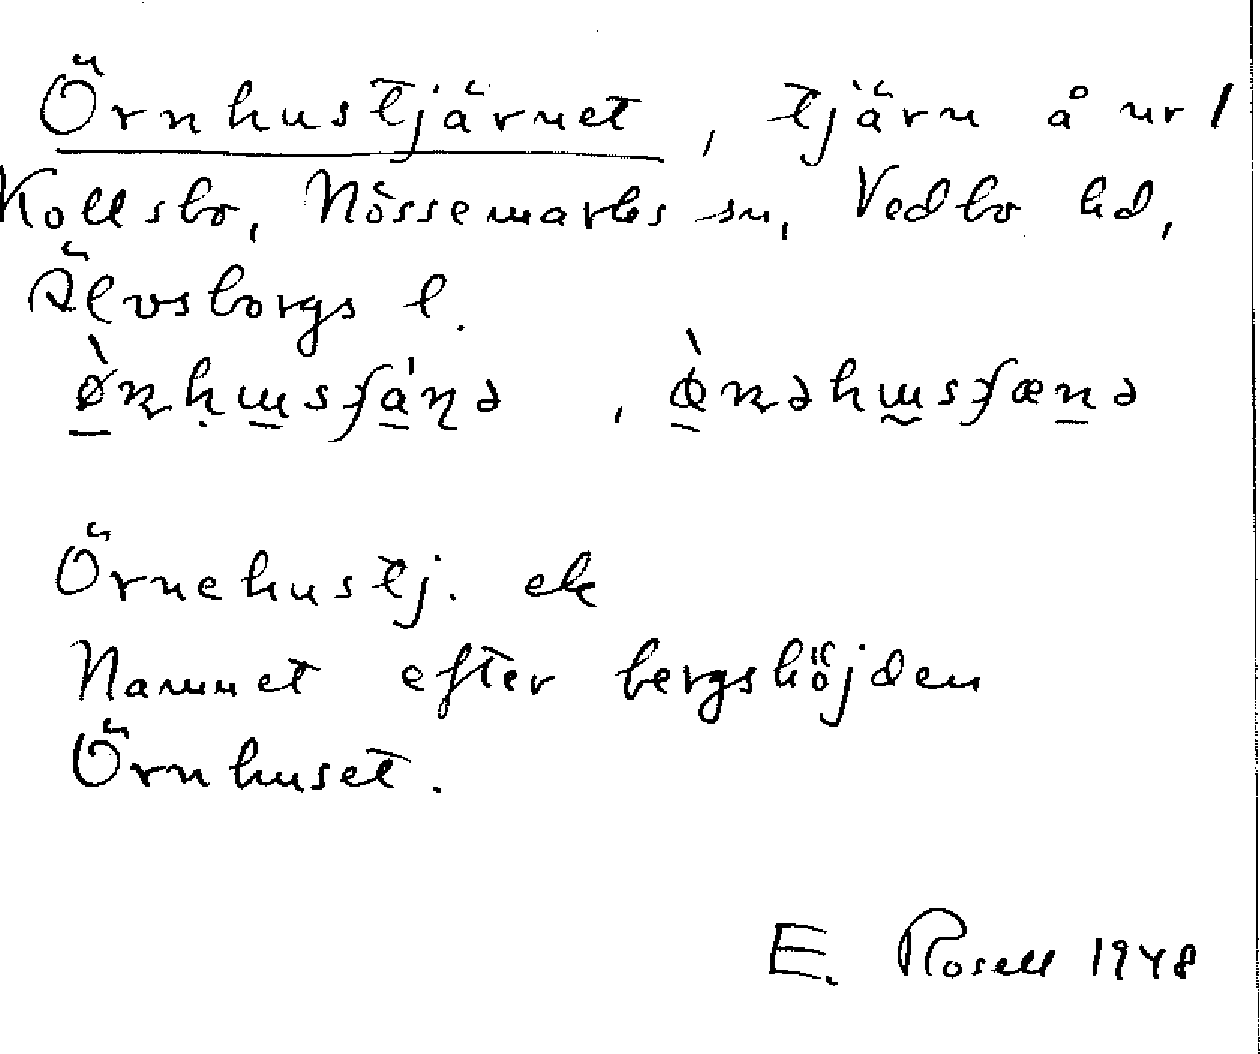 Örnhustjärnet, tjärn å nr 1
Kollsbo, Nössemarks sn, Vedbo hd,
Älvsborgs l.
Örnehustj. ek
Namnet efter bergshöjden
Örnhuset.
E. Rosell 1948